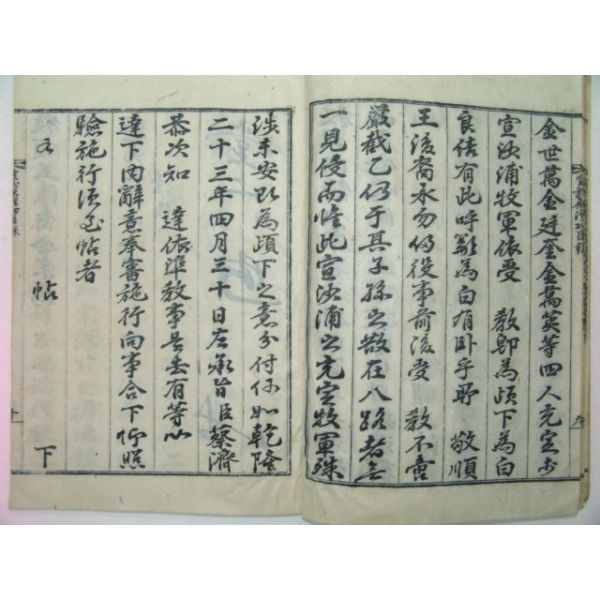 金世萬金廷奎金萬英等四人充定于
宣沙浦牧軍依受 敎卽爲頉下爲白
良結有此呼籲爲白有臥乎所 敬順
王後裔永勿仍役事前後受 敎不啻
嚴截乙仍于其子孫之散在八路者無
一見侵而惟此宣沙浦之充定牧軍殊
涉未安以爲頉下之意分付何如乾隆
二十三年四月三十日左承旨臣蔡濟
恭次知 達依準敎事是去有等以
達下內辭意奉審施行向事合下仰照
驗施行須至帖者
右 帖 下